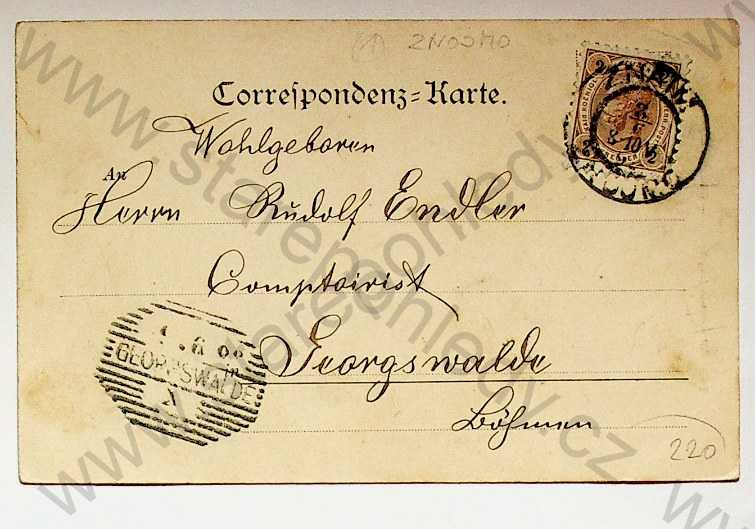 (1) ZNOJMO
Correspondenz-Karte.
Wohlgeboren
An
Herrn Rudolf Endler
Comptoirist
in
Georgswalde
Böhmen
ZNAIM
8/6
ZNOJMO
GEORGSWALDE
220
www.starepohledy.cz